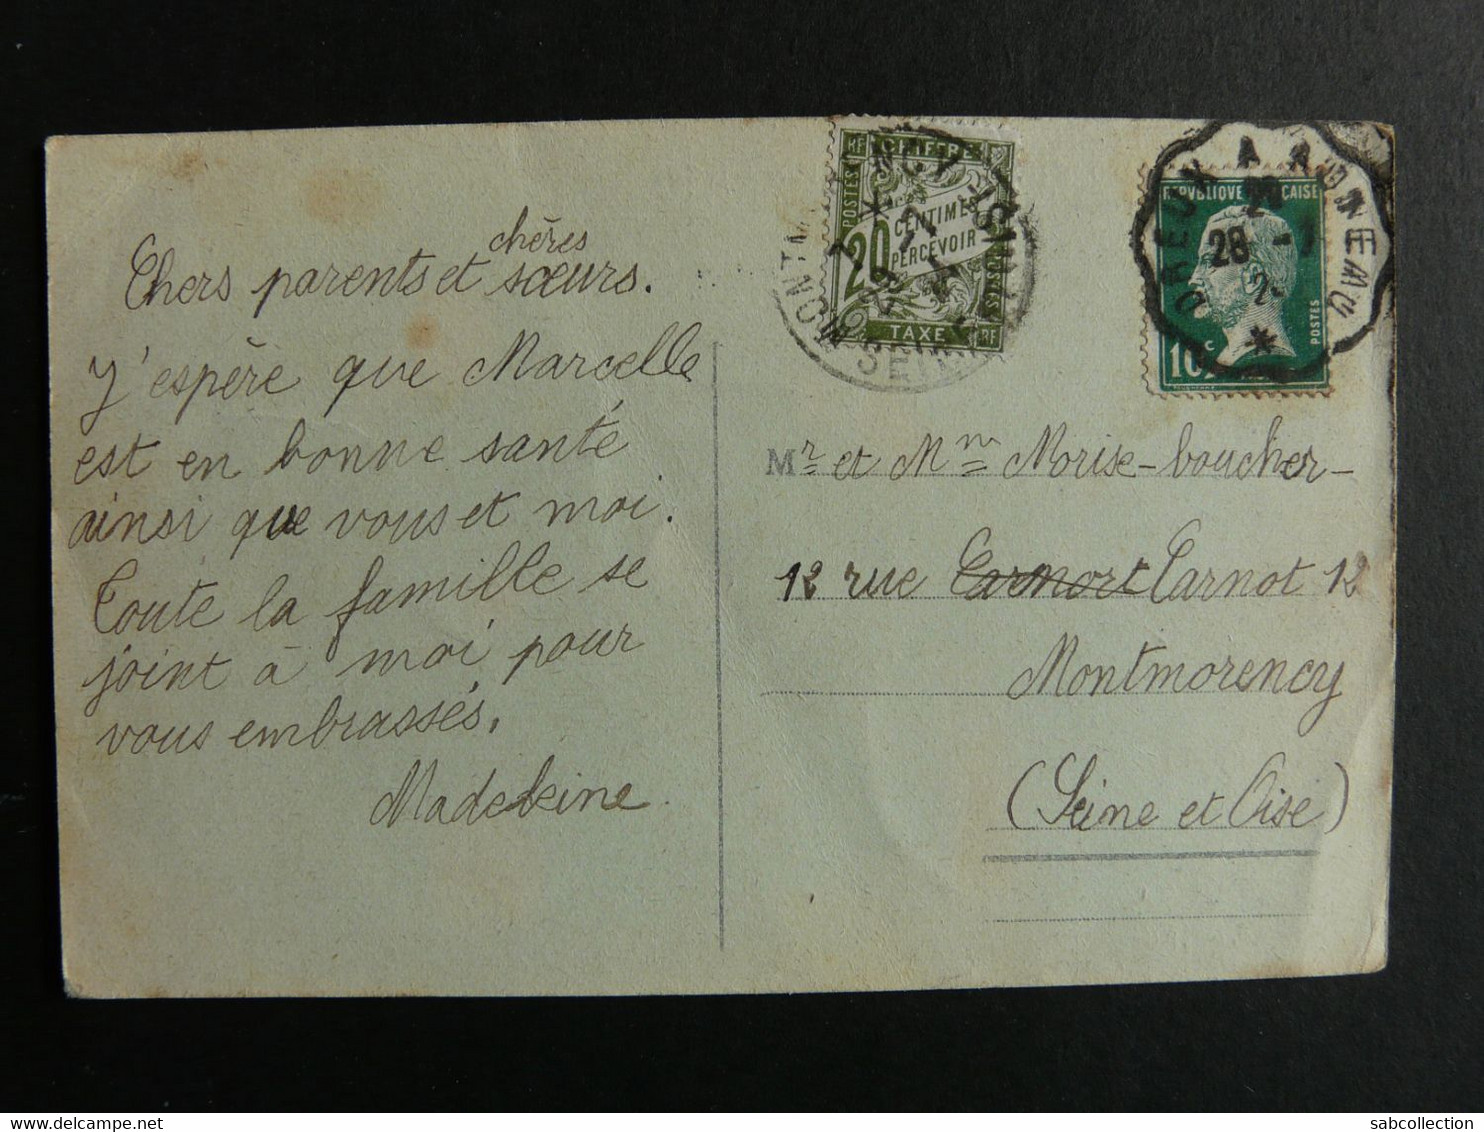 Chers parents et chères sœurs.
J'espère que Marcelle
est en bonne santé
ainsi que vous et moi.
Toute la famille se
joint à moi pour
vous embrassés.
Madeleine
RF CHIFFRE
POSTES
20 CENTIMES
PERCEVOIR
TAXE RF
REPVBLIQUE FRANÇAISE
POSTES
10c
DREUX A
28 -7
Mr et Mm Morise-boucher-
12 rue Carmort Carnot 12
Montmorency
(Seine et Oise)
sabcollection